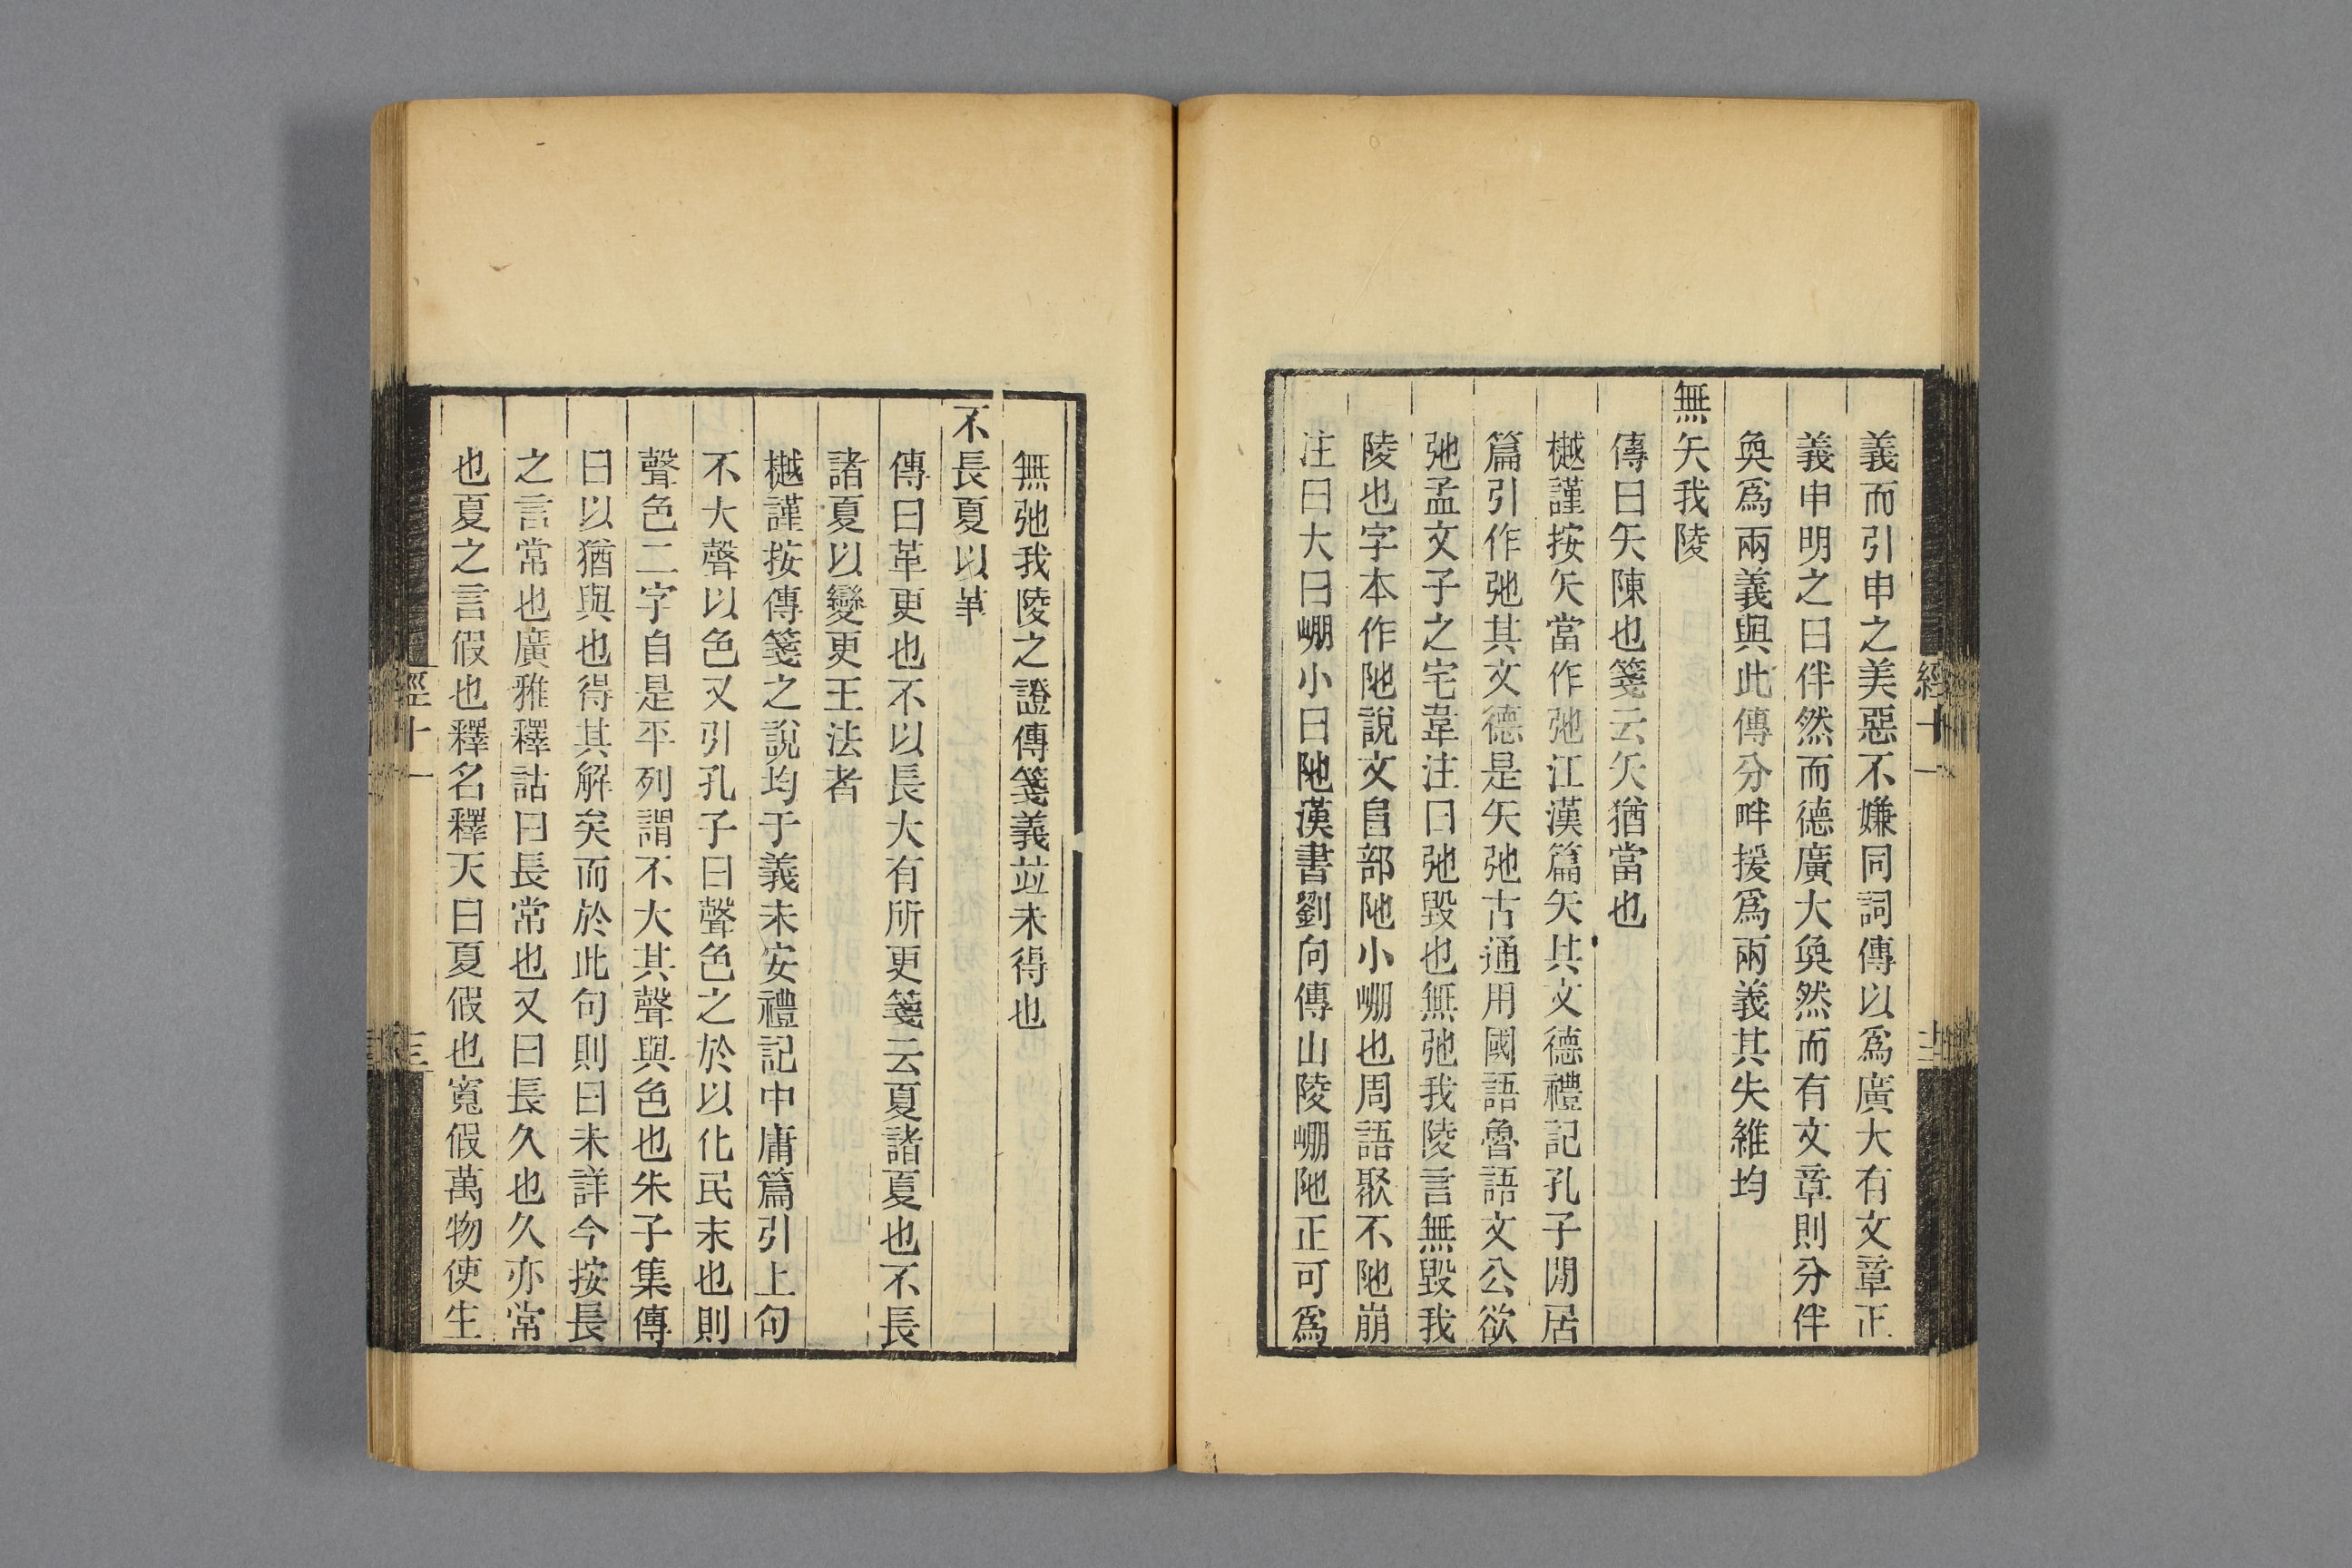 義而引申之美惡不嫌同詞傳以爲廣大有文章正
義申明之曰伴然而德廣大奐然而有文章則分伴
奐爲兩義與此傳分畔援爲兩義其失維均
無矢我陵
傳曰矢陳也箋云矢猶當也
樾謹按矢當作弛江漢篇矢其文德禮記孔子閒居
篇引作弛其文德是矢弛古通用國語魯語文公欲
弛孟文子之宅韋注曰弛毀也無弛我陵言無毀我
陵也字本作阤說文𨸏部阤小崩也周語聚不阤崩
注曰大曰崩小曰阤漢書劉向傳山陵崩阤正可爲
無弛我陵之證傳箋義竝未得也
不長夏以革
傳曰革更也不以長大有所更箋云夏諸夏也不長
諸夏以變更王法者
樾謹按傳箋之說均于義未安禮記中庸篇引上句
不大聲以色又引孔子曰聲色之於以化民末也則
聲色二字自是平列謂不大其聲與色也朱子集傳
曰以猶與也得其解矣而於此句則曰未詳今按長
之言常也廣雅釋詁曰長常也又曰長久也久亦常
也夏之言假也釋名釋天曰夏假也寬假萬物使生
經十一
經十一